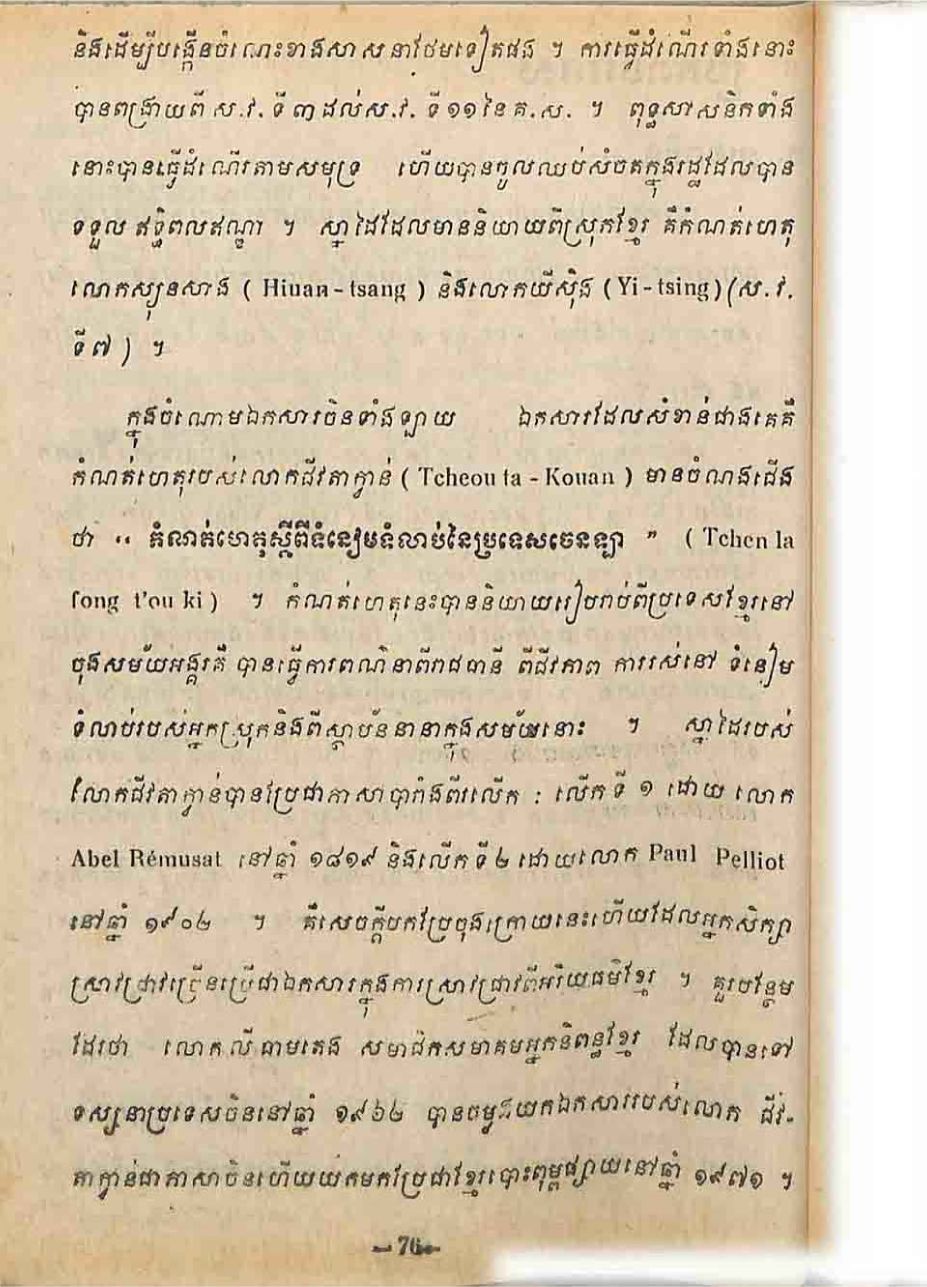 និងដើម្បីបង្កើនចំណេះខាងសាសនាថែមទៀតផង ។ ការធ្វើដំណើរទាំងនោះ
បានពង្រាយពី ស.វ. ទី ៣ ដល់ស.វ. ទី ១១ នៃ គ.ស. ។ ពុទ្ធសាសនិកទាំង
នោះបានធ្វើដំណើរតាមសមុទ្រ ហើយបានចូលឈប់សំចតក្នុងរដ្ឋដែលបាន
ទទួល ឥទ្ធិពលឥណ្ឌា ។ ស្នាដៃដែលមាននិយាយពីស្រុកខ្មែរ គឺកំណត់ហេតុ
លោកស្យូនសាង ( Hiuan - tsang ) និងលោកយីស៊ិង ( Yi - tsing ) (ស.វ.
ទី ៧ ) ។
ក្នុងចំណោមឯកសារចិនទាំងឡាយ ឯកសារដែលសំខាន់ជាងគេគឺ
កំណត់ហេតុរបស់លោកជីវតាក្វាន់ ( Tcheou ta - Kouan ) មានចំណងជើង
ថា “ កំណត់ហេតុស្តីពីទំនៀមទំលាប់នៃប្រទេសចេនឡា ” ( Tchen la
fong t'ou ki ) ។ កំណត់ហេតុនេះបាននិយាយរៀបរាប់ពីប្រទេសខ្មែរនៅ
ចុងសម័យអង្គរគឺ បានធ្វើការពណ៌នាពីរាជធានី ពីជីវភាព ការរស់នៅ ទំនៀម
ទំលាប់របស់អ្នកស្រុកនិងពីស្ថាប័ននានាក្នុងសម័យនោះ ។ ស្នាដៃរបស់
លោកជីវតាក្វាន់បានប្រែជាភាសាបារាំងពីរលើក : លើកទី ១ ដោយ លោក
Abel Rémusat នៅឆ្នាំ ១៨១៩ និងលើកទី ២ ដោយលោក Paul Pelliot
នៅឆ្នាំ ១៩០២ ។ គឺសេចក្តីបកប្រែចុងក្រោយនេះហើយដែលអ្នកសិក្សា
ស្រាវជ្រាវច្រើនប្រើជាឯកសារក្នុងការស្រាវជ្រាវពីអរិយធម៌ខ្មែរ ។ គួរបន្ថែម
ដែរថា លោក លី ធាមតេង សមាជិកសមាគមអ្នកនិពន្ធខ្មែរ ដែលបានទៅ
ទស្សនាប្រទេសចិននៅឆ្នាំ ១៩៦២ បានចម្លងយកឯកសាររបស់លោក ជីវ-
តាក្វាន់ជាភាសាចិនហើយយកមកប្រែជាខ្មែរបោះពុម្ពផ្សាយនៅឆ្នាំ ១៩៧១ ។
- 76 -